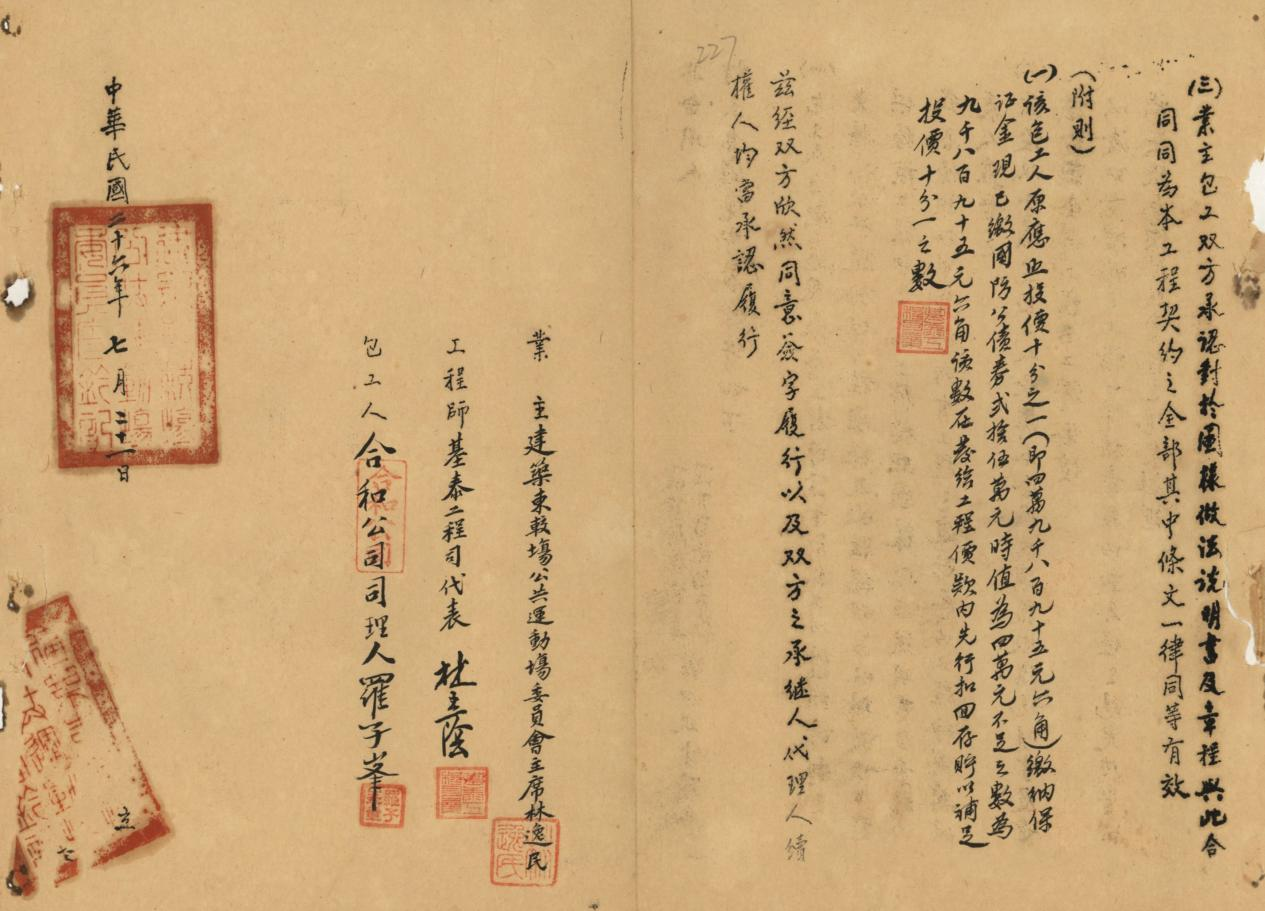 (三)業主包工双方承認對於圖樣做法説明書及章程與此合
同同為本工程契約之全部其中條文一律同等有效
(附則)
(一)該包工人原應照投價十分之一(即四萬九千八百九十五元六角)繳納保
証金現已繳國防公債券弍拾伍萬元時值為四萬元不足之數為
九千八百九十五元六角該數在發給工程價款內先行扣回存貯以補足
投價十分一之數
茲經双方欣然同意簽字履行以及双方之承继人代理人續
權人均當承認履行
227
業 主建築東較場公共運動場委員會主席林逸民
工程師基泰工程司代表
包工人合和公司司理人羅子峯
合和公司
中華民國二十六年 七月二十一日
立